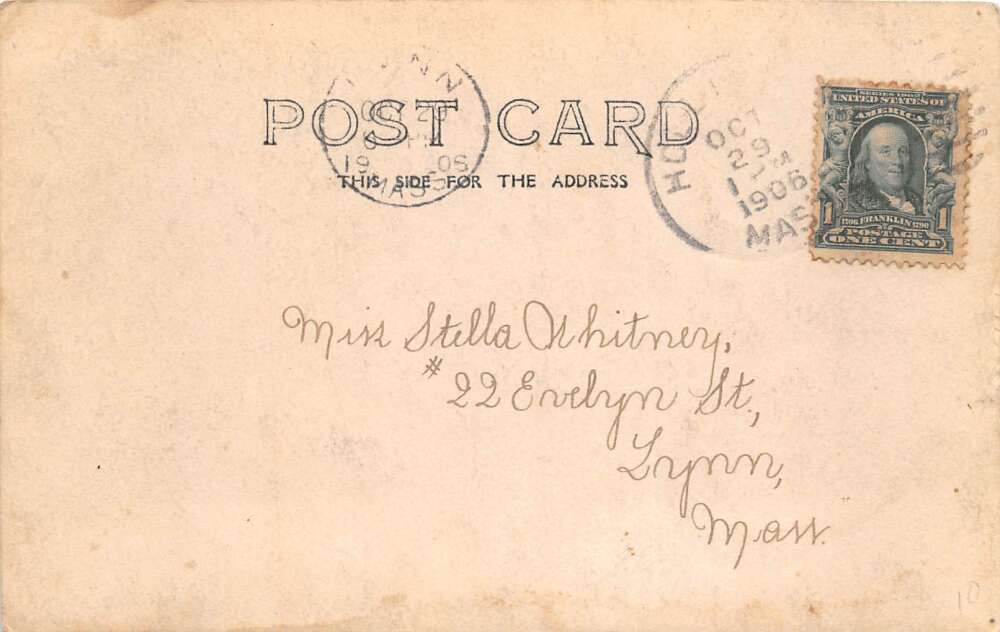 POST CARD
THIS SIDE FOR THE ADDRESS
LYNN
29
MASS
OCT
29
1 M
1906
MAS
SERIES 1902
UNITED STATES OF
AMERICA
1 1
1706 FRANKLIN 1790
POSTAGE
ONE CENT
Miss Stella Whitney,
# 22 Evelyn St.,
Lynn,
Mass.
10